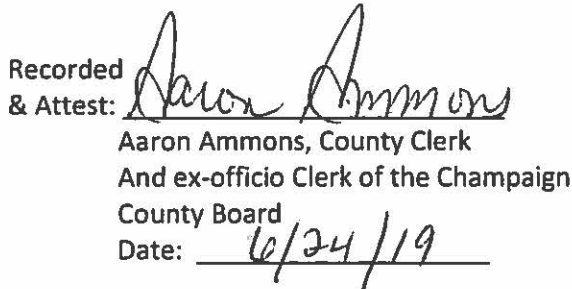 Recorded
& Attest: Aaron Ammons
Aaron Ammons, County Clerk
And ex-officio Clerk of the Champaign
County Board
Date: 6/24/19